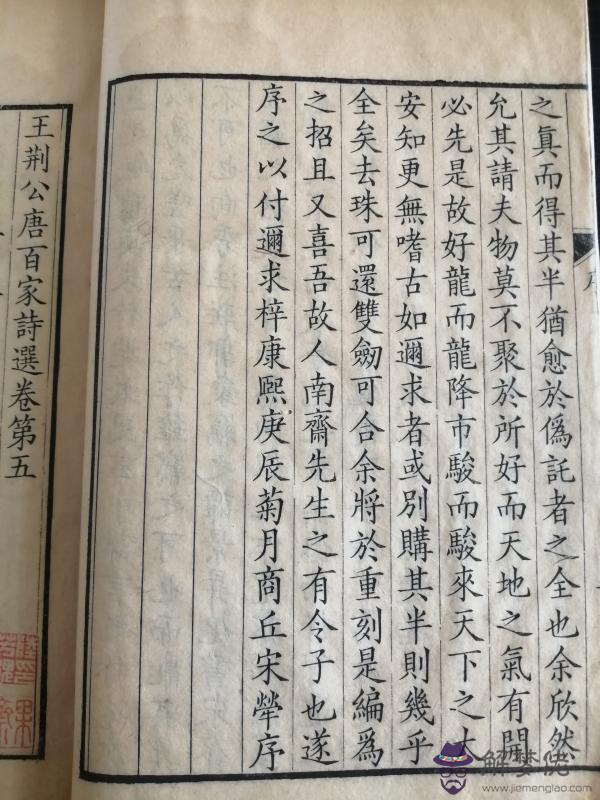 之真而得其半猶愈於僞託者之全也余欣然
允其請夫物莫不聚於所好而天地之氣有開
必先是故好龍而龍降市駿而駿來天下之大
安知更無嗜古如邇求者或別購其半則幾乎
全矣去珠可還雙劒可合余將於重刻是編爲
之招且又喜吾故人南齋先生之有令子也遂
序之以付邇求梓康熙庚辰菊月商丘宋犖序
王荆公唐百家詩選卷第五
序
解梦佬
www.jiemenglao.com